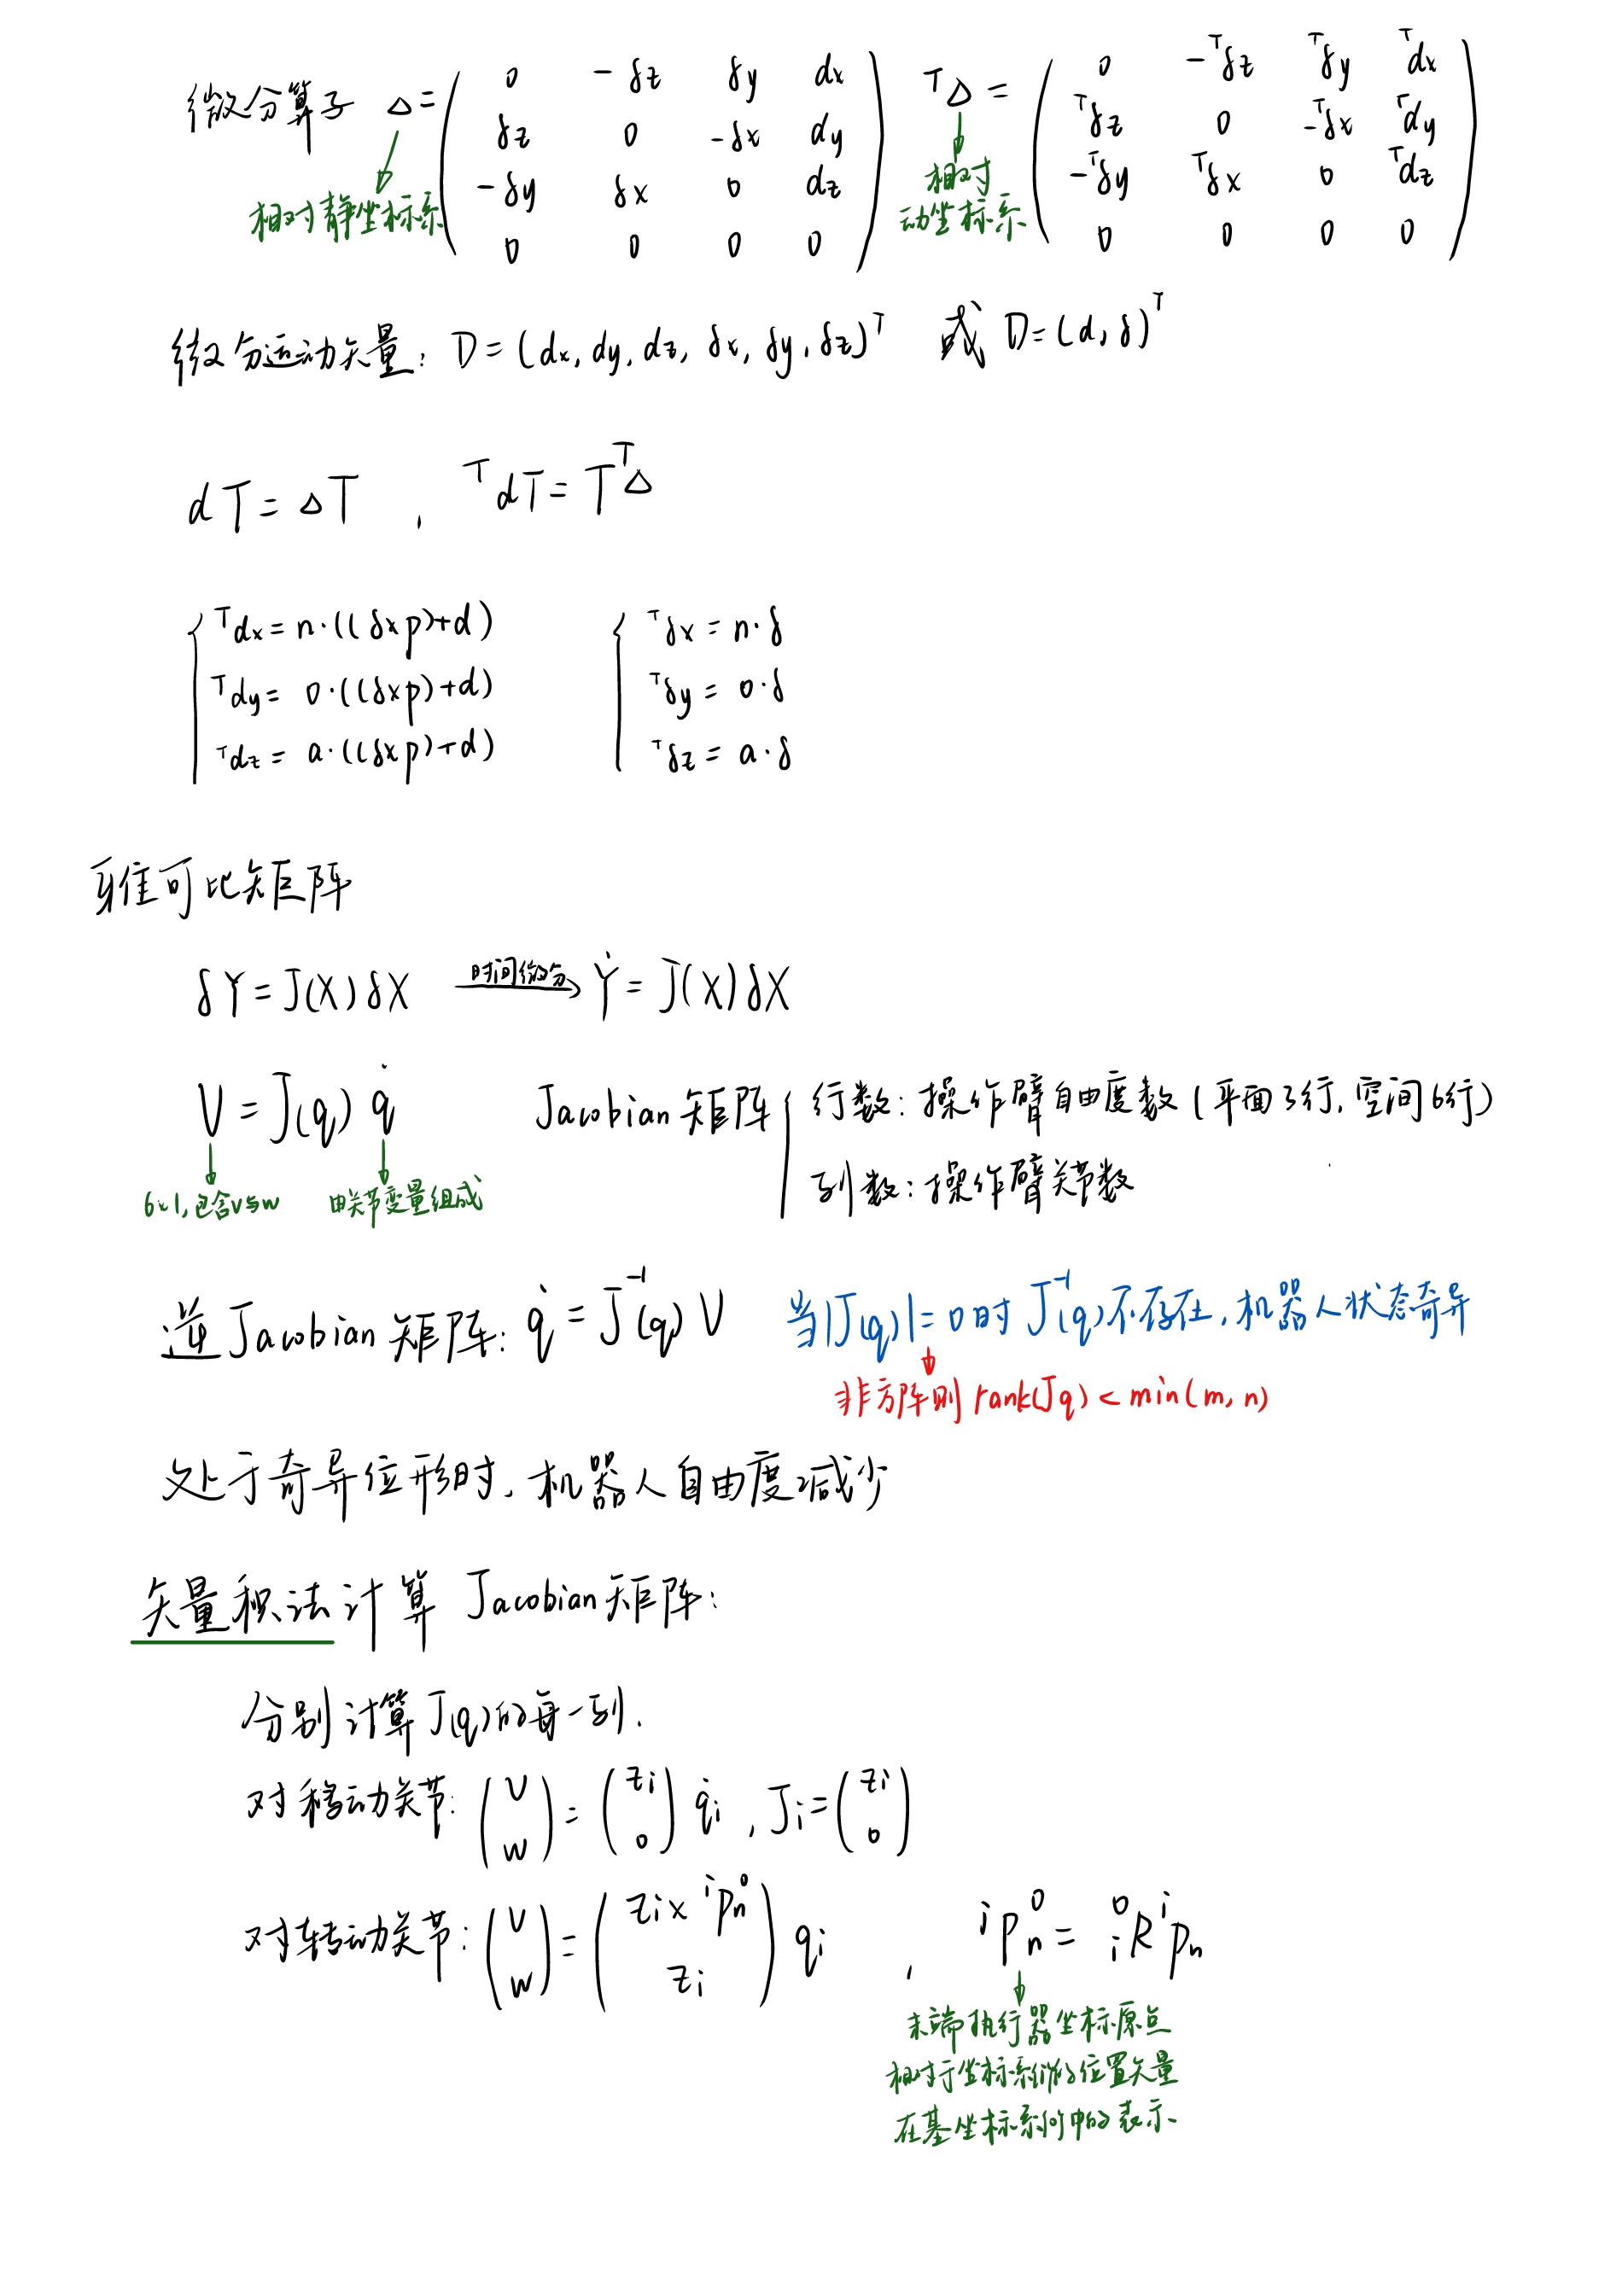 微分算子 Δ = ( 0 -δz δy dx ; δz 0 -δx dy ; -δy δx 0 dz ; 0 0 0 0 ) ᵀΔ = ( 0 -ᵀδz ᵀδy ᵀdx ; ᵀδz 0 -ᵀδx ᵀdy ; -ᵀδy ᵀδx 0 ᵀdz ; 0 0 0 0 )
相对静坐标系
相对
动坐标系
微分运动矢量: D = (dx, dy, dz, δx, δy, δz)ᵀ 或 D = (d, δ)ᵀ
dT = ΔT , ᵀdT = TᵀΔ
ᵀdx = n·((δ×p)+d) ᵀδx = n·δ
ᵀdy = o·((δ×p)+d) ᵀδy = o·δ
ᵀdz = a·((δ×p)+d) ᵀδz = a·δ
雅可比矩阵
δY = J(X)δX 时间微分→ Ẏ = J(X)δX
V = J(q) q̇ Jacobian矩阵 { 行数: 操作臂自由度数 (平面3行, 空间6行)
列数: 操作臂关节数
6×1, 包含v与w 由关节变量组成
逆Jacobian矩阵: q̇ = J⁻¹(q) V 当|J(q)| = 0时 J⁻¹(q)不存在, 机器人状态奇异
非方阵则 rank(Jq) < min(m, n)
处于奇异位形时, 机器人自由度减少
矢量积法计算 Jacobian矩阵:
分别计算J(q)的每一列.
对移动关节: (v ; w) = (zi ; 0) q̇i , Ji = (zi ; 0)
对转动关节: (v ; w) = (zi × ⁱpₙ⁰ ; zi) qi , ⁱpₙ⁰ = ⁰ᵢR ⁱpₙ
末端执行器坐标原点
相对于坐标系{i}的位置矢量
在基坐标系{0}中的表示